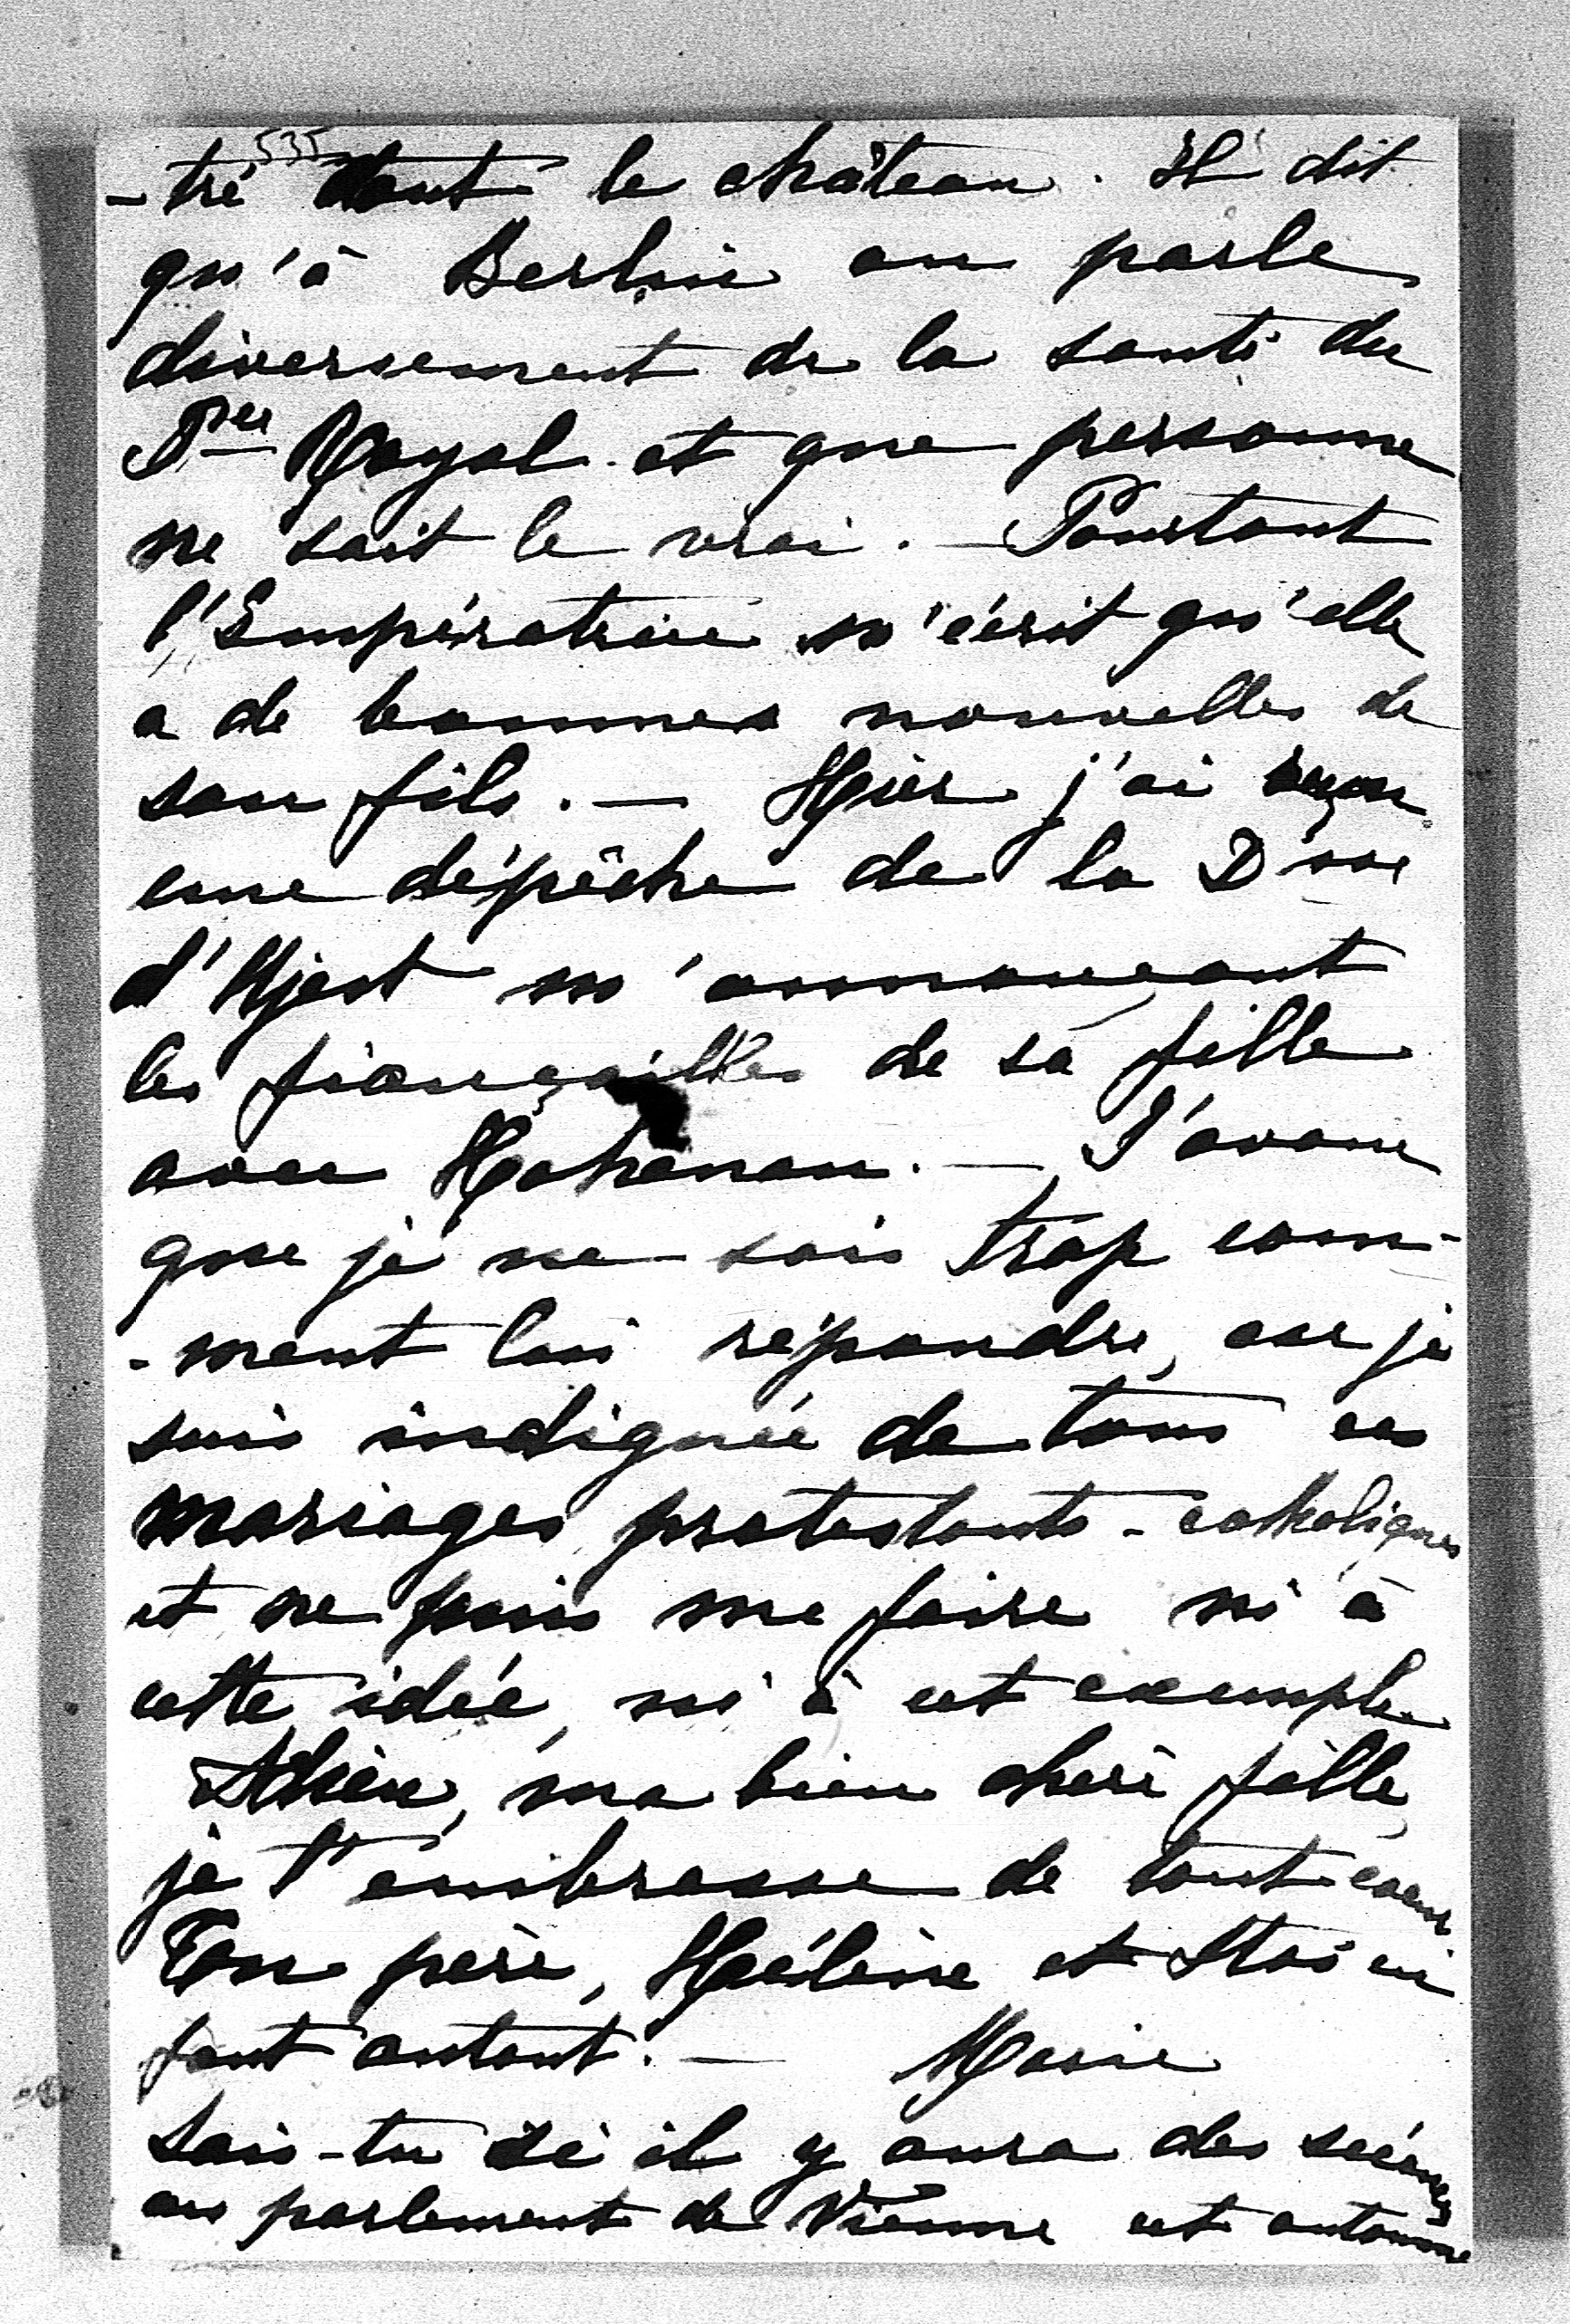 535
-tré tout le château. Il dit
qu'à Berlin on parle
diversement de la santé du
Pce Royal et que personne
ne sait le vrai. — Pourtant
l'Impératrice m'écrit qu'elle
a de bonnes nouvelles de
son fils. — Hier j'ai reçu
une dépêche de la Dsse
d'Ujest m'annonçant
les fiançailles de sa fille
avec Hohenau. — J'avoue
que je ne sais trop com-
-ment lui répondre, car je
suis indignée de tous ces
mariages protestants-catholiques
et ne puis me faire ni à
cette idée, ni à cet exemple
Adieu, ma bien chère fille,
je t'embrasse de tout coeur
Ton père, Hélène et Stas en
font autant. — Marie
Sais-tu si il y aura des séances
au parlement de Vienne cet automne